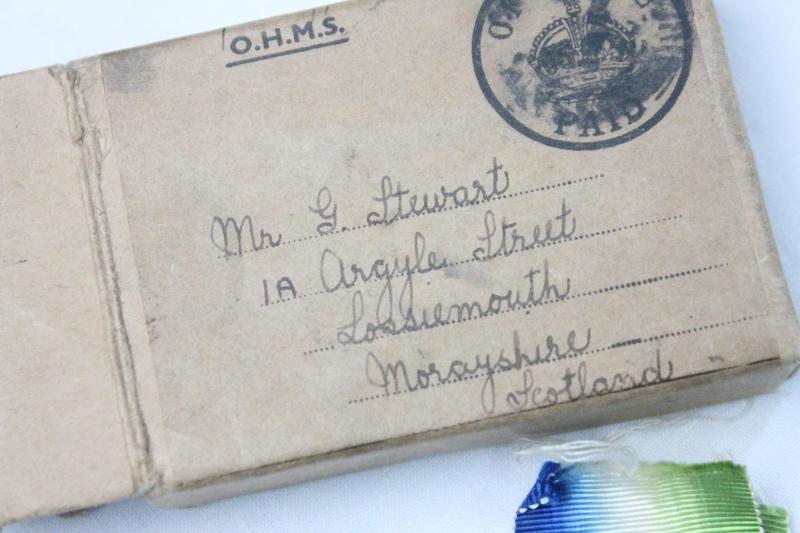 O.H.M.S.
PAID
Mr G. Stewart
1A Argyle Street
Lossiemouth
Morayshire
Scotland